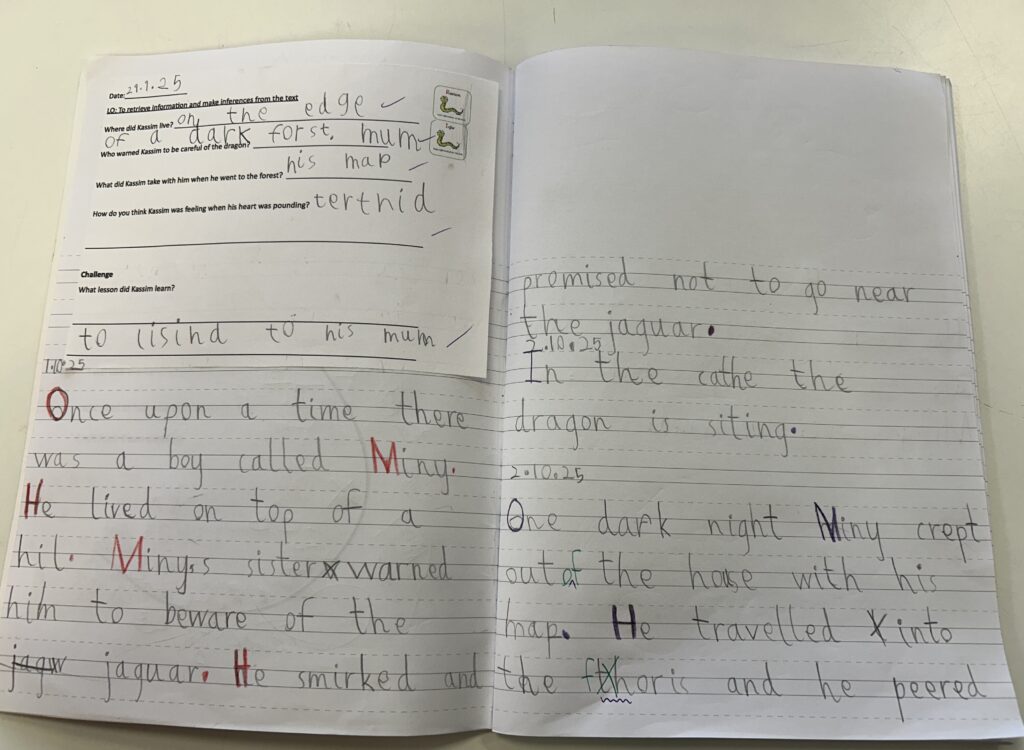 Date: 29.1.25
LO: To retrieve information and make inferences from the text
Where did Kassim live? on the edge
of a dark forst.
Who warned Kassim to be careful of the dragon? mum
What did Kassim take with him when he went to the forest? his map
How do you think Kassim was feeling when his heart was pounding? tertnid
Challenge
What lesson did Kassim learn?
to lisind to his mum
1.10.25
Once upon a time there
was a boy called Miny.
He lived on top of a
hil. Miny,s sister warned
him to beware of the
jagw jaguar. He smirked and
promised not to go near
the jaguar.
2.10.25
In the cathe the
dragon is siting.
2.10.25
One dark night Miny crept
out of the house with his
map. He travelled into
the fthoris and he peered